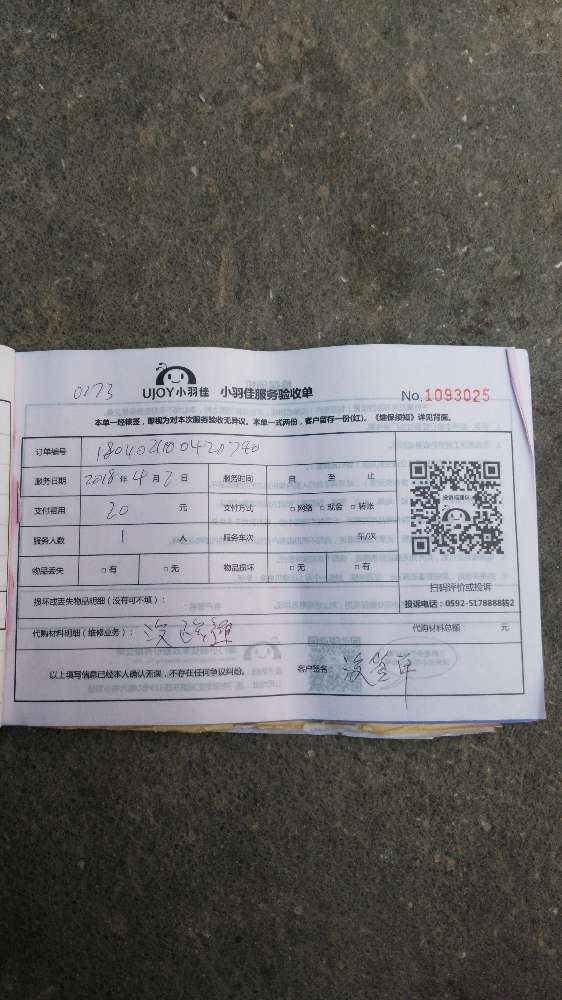 0273
UJOY小羽佳 小羽佳服务验收单 No.1093025
本单一经核签，即视为对本次服务验收无异议。本单一式两份，客户留存一份(红)。《维保须知》详见背面。
订单编号
服务日期 2018年4月2日 服务时间 自 至 止
支付费用 20 元 支付方式 □网络 □现金 □转账
服务人数 1 人 服务车次 车/次
物品丢失 □有 □无 物品损坏 □无 □有
扫码评价或投诉
投诉电话：0592-5178888转2
损坏或丢失物品明细（没有可不填）：
代购材料明细（维修业务）： 没 代购材料总额： 元
以上填写信息已经本人确认无误，不存在任何争议纠纷。 客户签名： 没签单